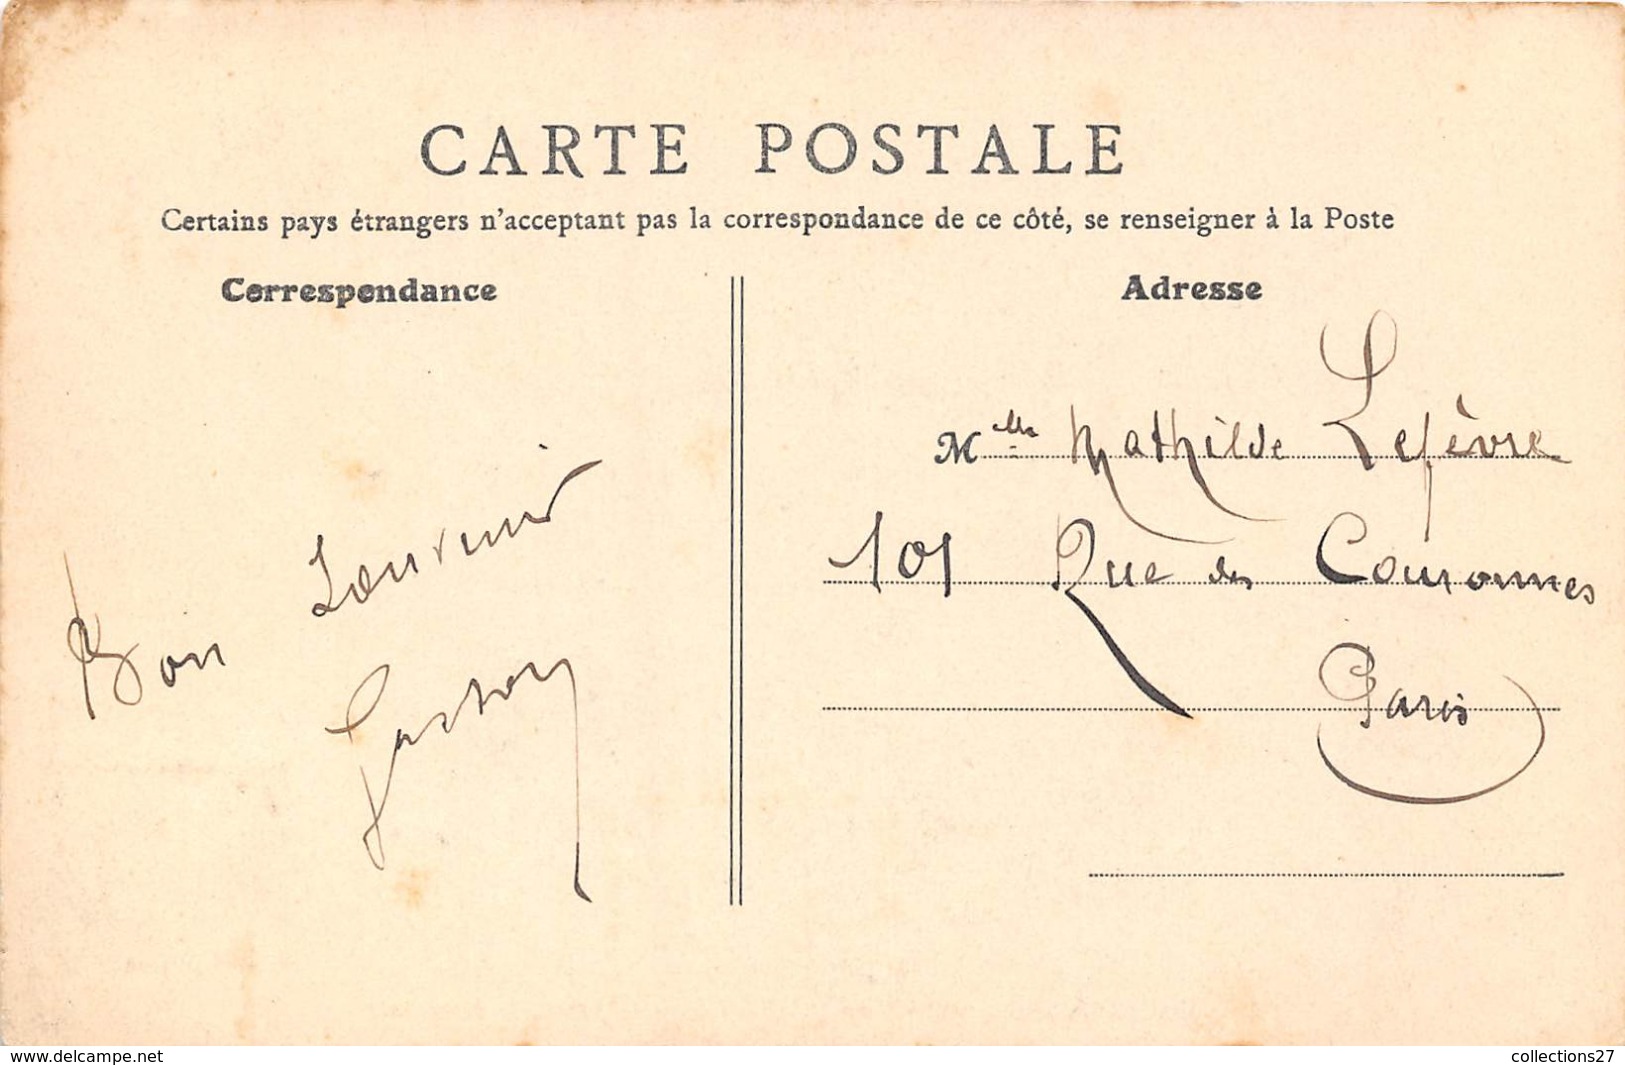 CARTE POSTALE
Certains pays étrangers n'acceptant pas la correspondance de ce côté, se renseigner à la Poste
Correspondance
Adresse
Bon Souvenir
Gaston
Mlle Mathilde Lefèvre
101 Rue des Couronnes
Paris
www.delcampe.net
collections27